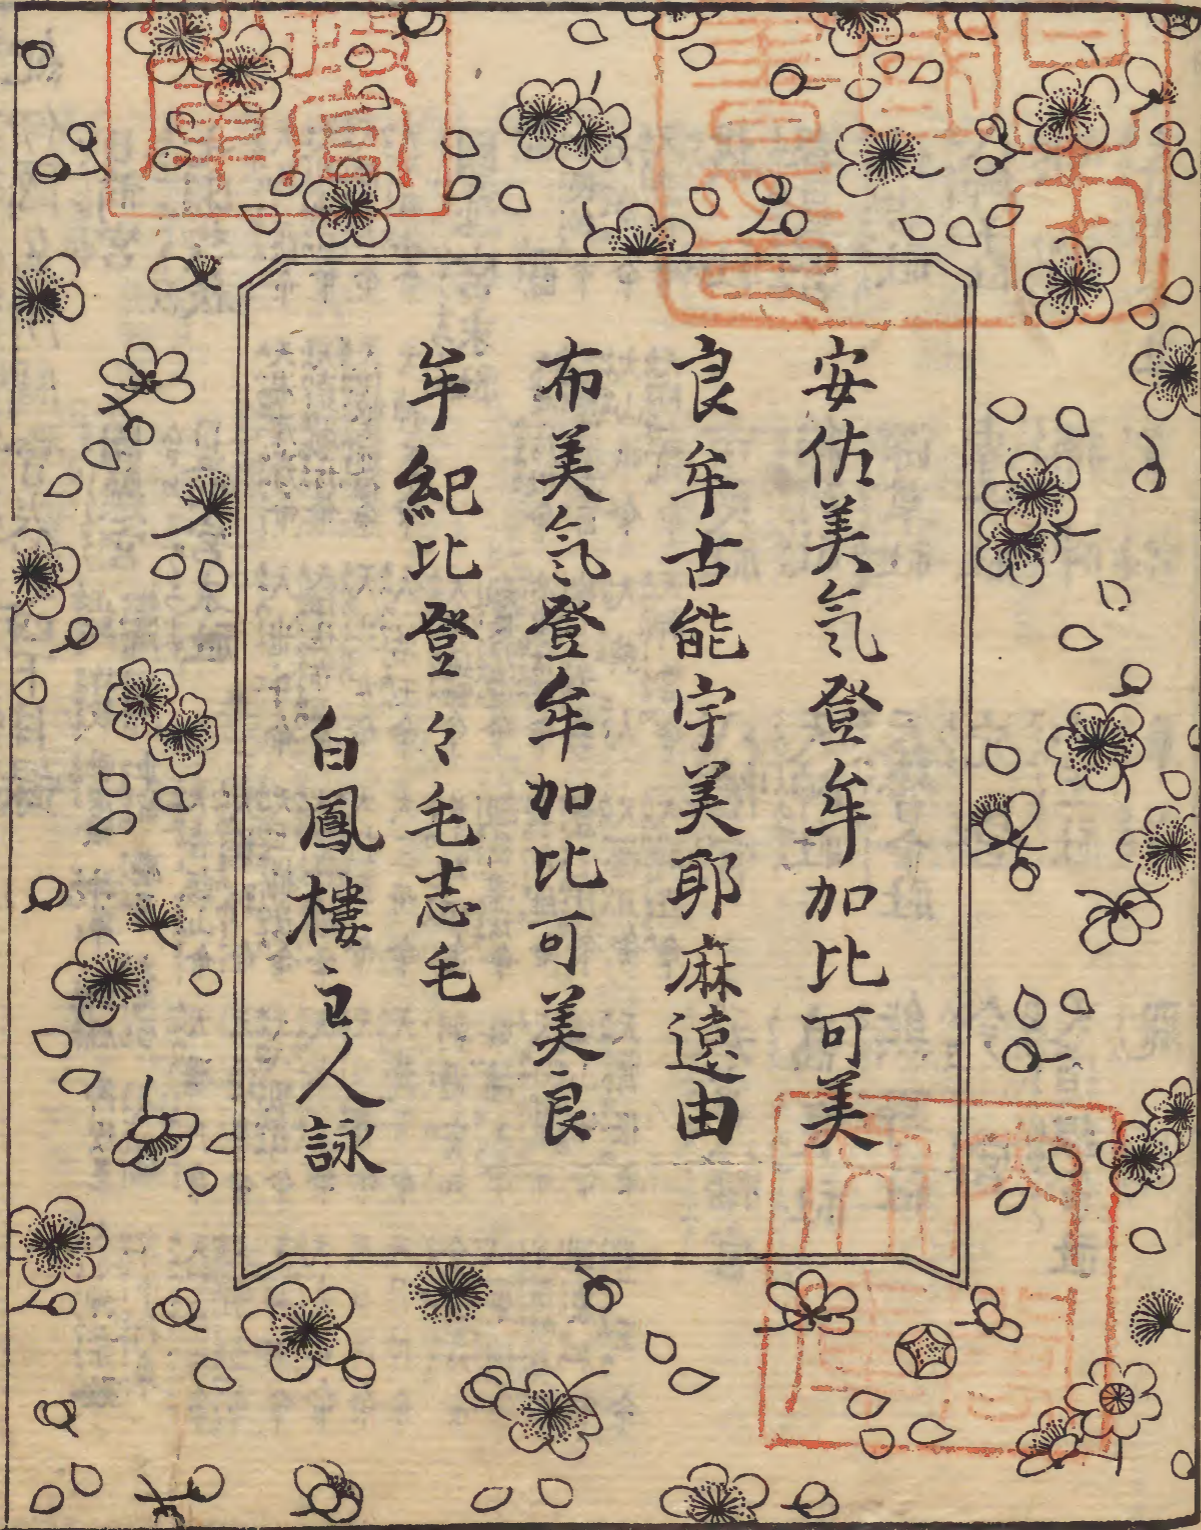 安佐美気登牟加比可美
良牟古能宇美耶麻遠由
布美気登牟加比可美良
牟紀比登々毛志毛
白鳳樓主人詠